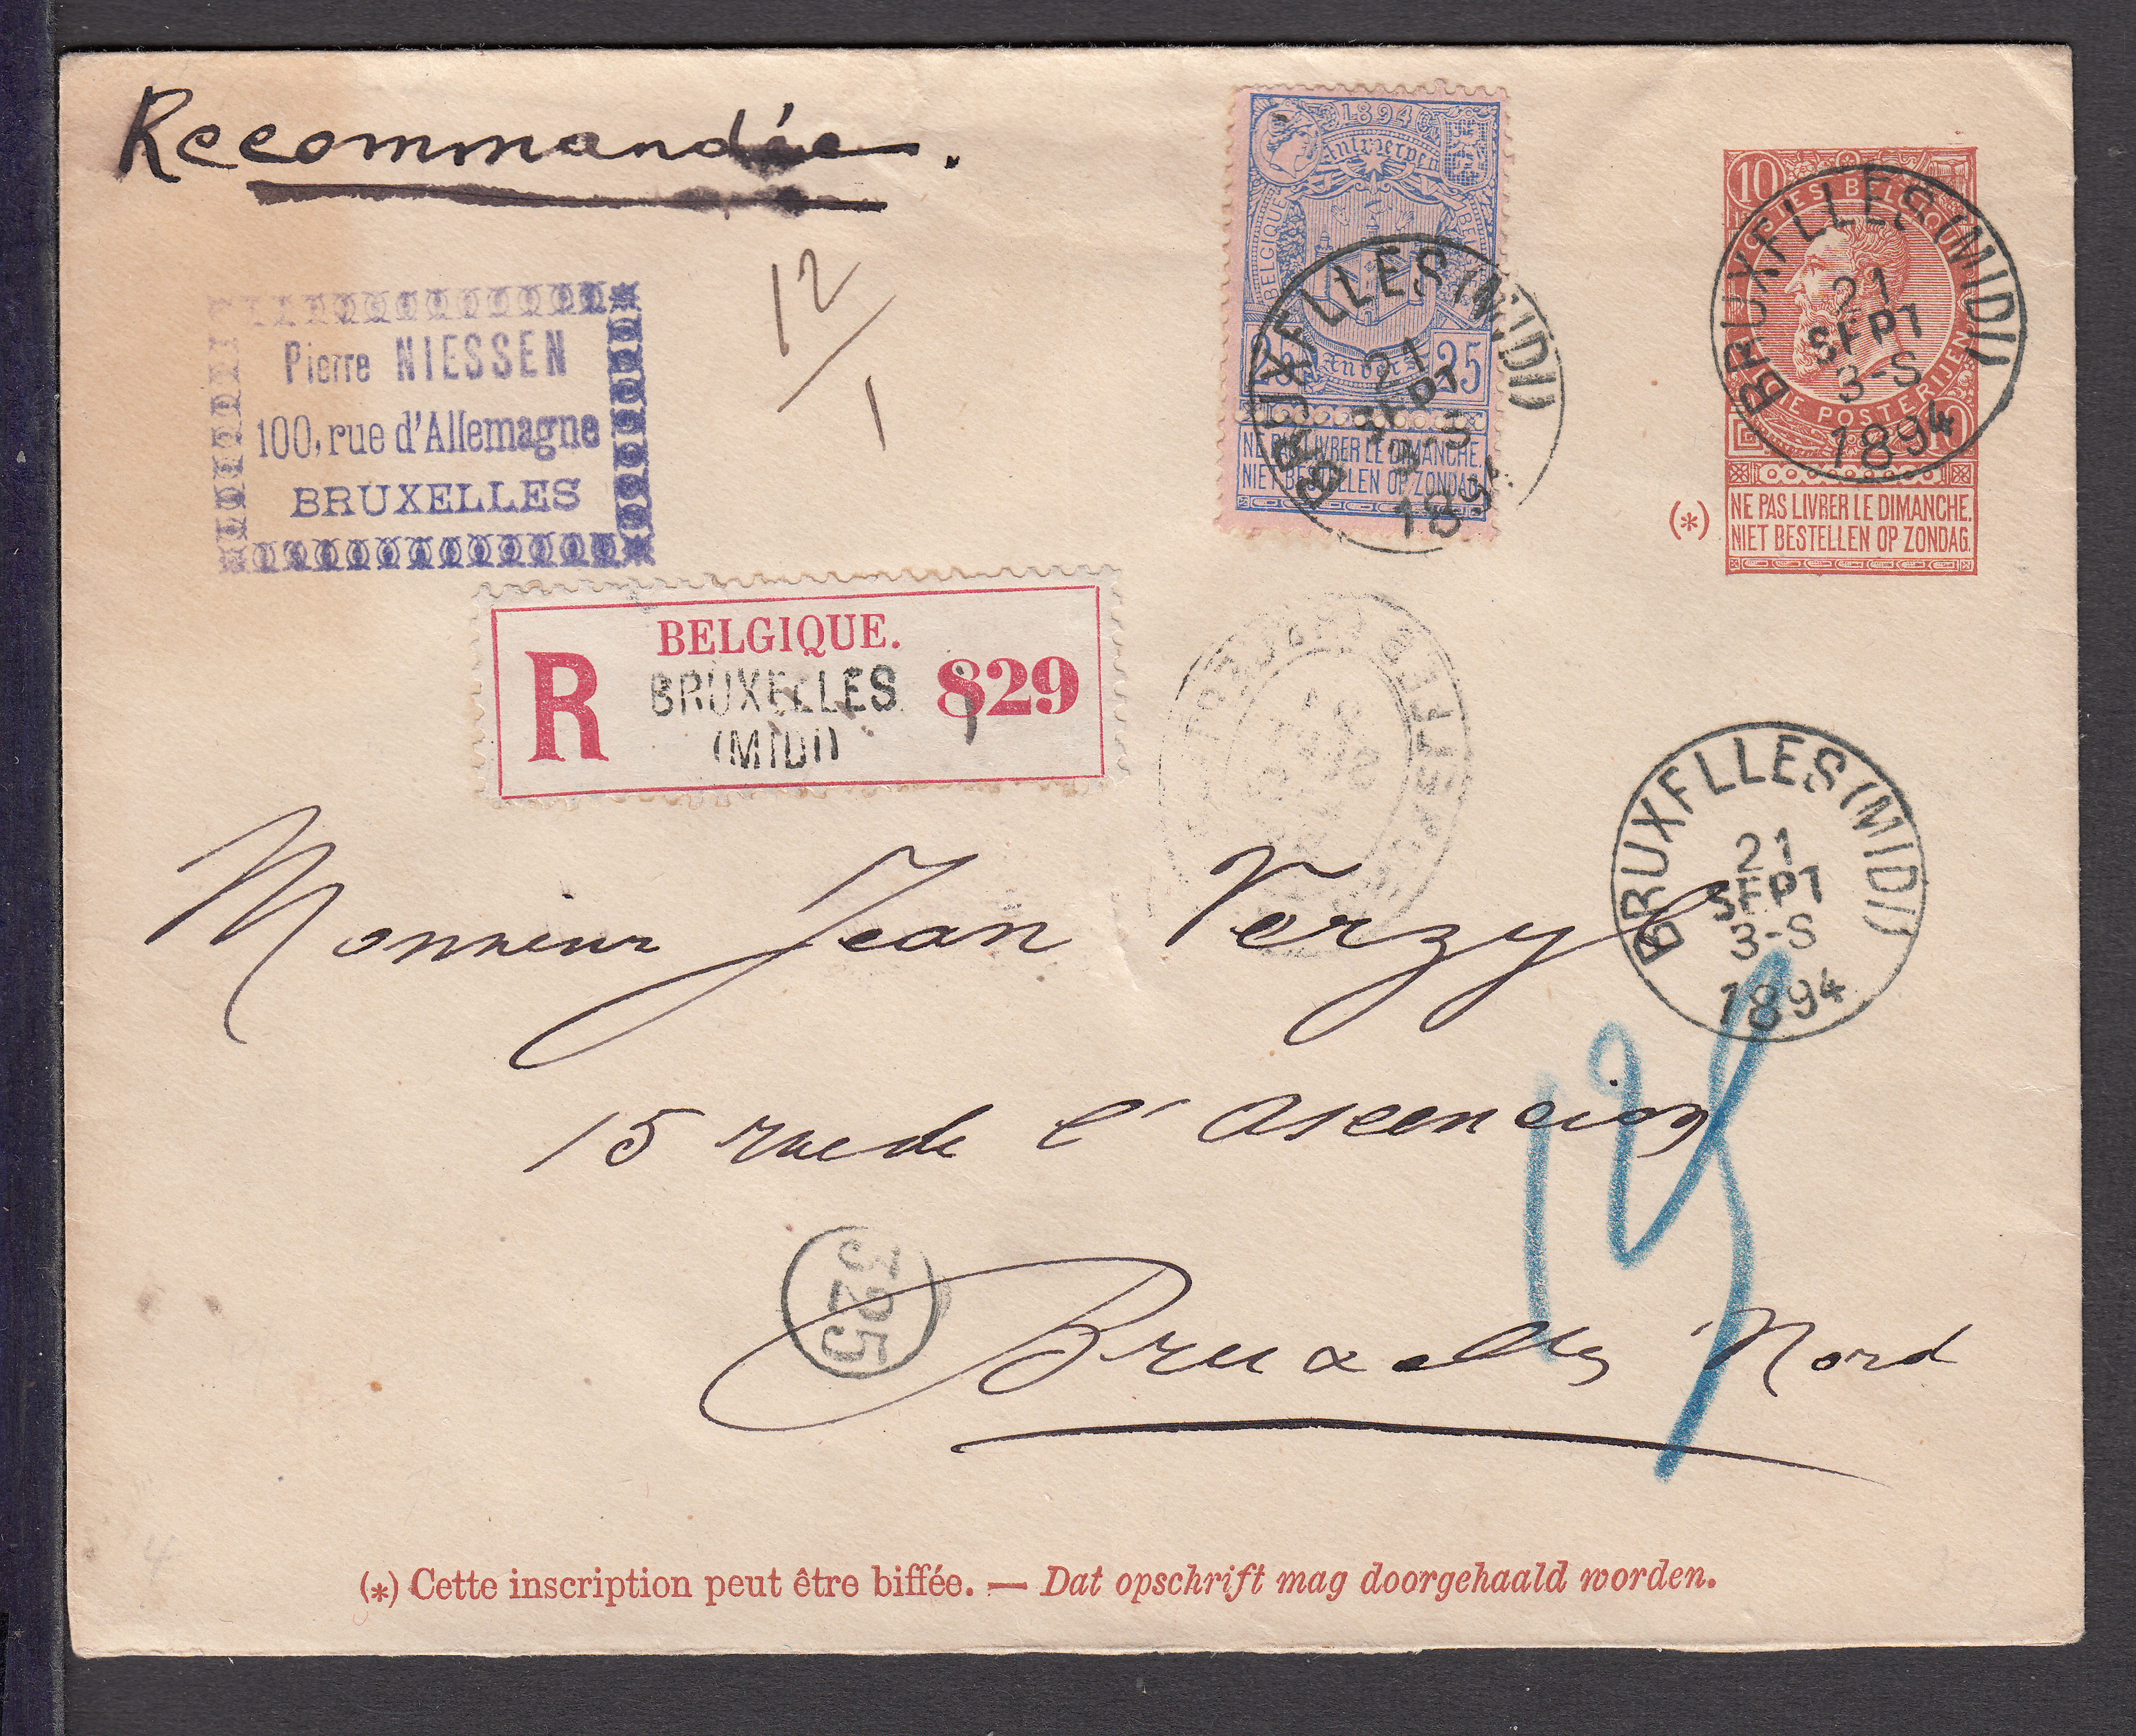 Recommandée.
12/1
Pierre NIESSEN
100, rue d'Allemagne
BRUXELLES
1894
Antwerpen
BELGIQUE
25 25
Anvers
NE PAS LIVRER LE DIMANCHE.
NIET BESTELLEN OP ZONDAG.
BRUXELLES (MIDI)
21
SEPT
3-S
1894
10
POSTES BELGIQUE
POSTERIJEN
10
(*)
NE PAS LIVRER LE DIMANCHE.
NIET BESTELLEN OP ZONDAG.
BRUXELLES (MIDI)
21
SEPT
3-S
1894
BELGIQUE.
R BRUXELLES 829
(MIDI)
BRUXELLES (MIDI)
21
SEPT
3-S
1894
Monsieur Jean Verzyl
15 rue de l'Ascencion
325
Bruxelles Nord
4
(*) Cette inscription peut être biffée. — Dat opschrift mag doorgehaald worden.